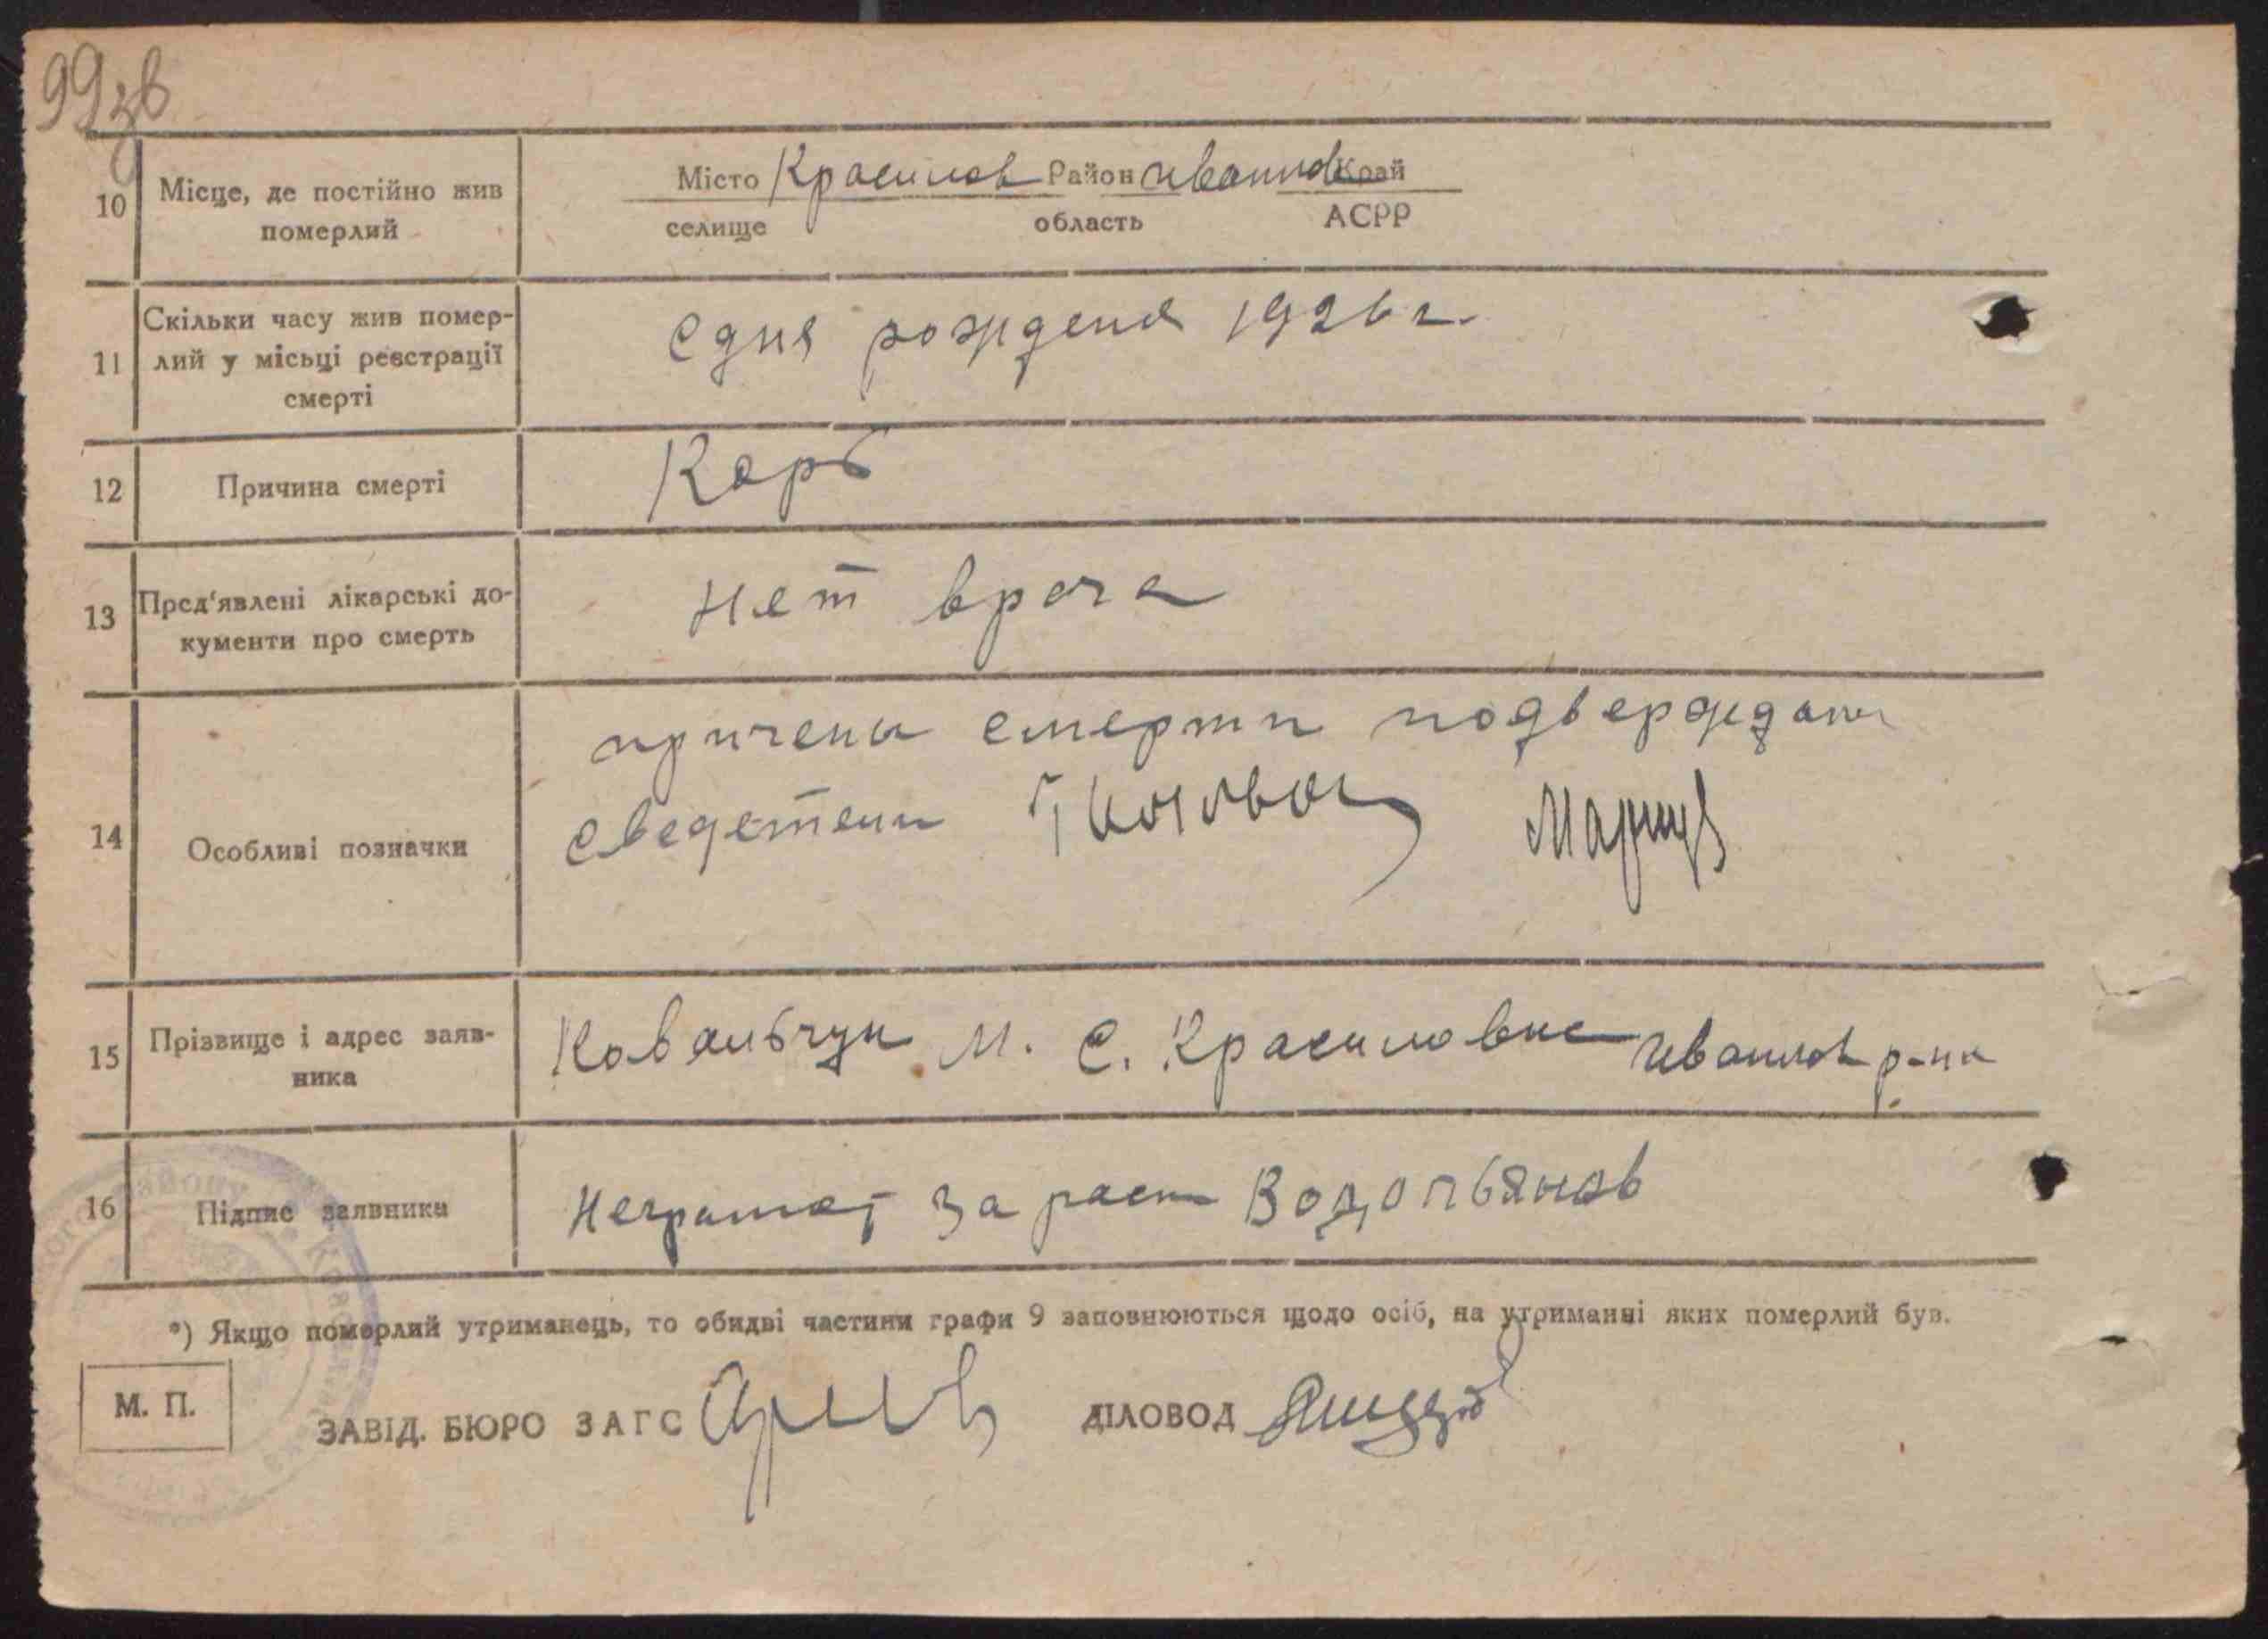 99зв
10 Місце, де постійно жив померлий
Місто Красилов Район Иванков Край
селище область АСРР
11 Скільки часу жив померлий у місьці реєстрації смерті
Сдня рождения 1926 г.
12 Причина смерті
Корь
13 Пред'явлені лікарські документи про смерть
Нет врача
14 Особливі позначки
причены смерти подверждают
сведетели
15 Прізвище і адрес заявника
Ковальчук М. С. Красиловке Иванков р-на
16 Підпис заявника
Неграмот за расп Водопьянов
*) Якщо померлий утриманець, то обидві частини графи 9 заповнюються щодо осіб, на утриманні яких померлий був.
М. П.
ЗАВІД. БЮРО ЗАГС
ДІЛОВОД